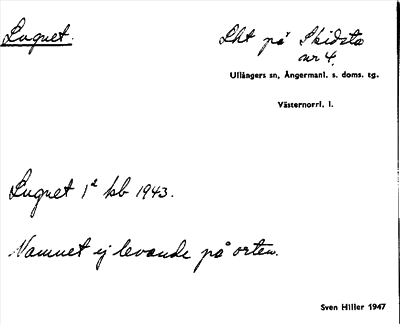 Lugnet.
Lht på Skidsta
nr 4.
Ullångers sn, Ångermanl. s. doms. tg.
Västernorrl. l.
Lugnet 1d kb 1943.
Namnet ej levande på orten.
Sven Hiller 1947